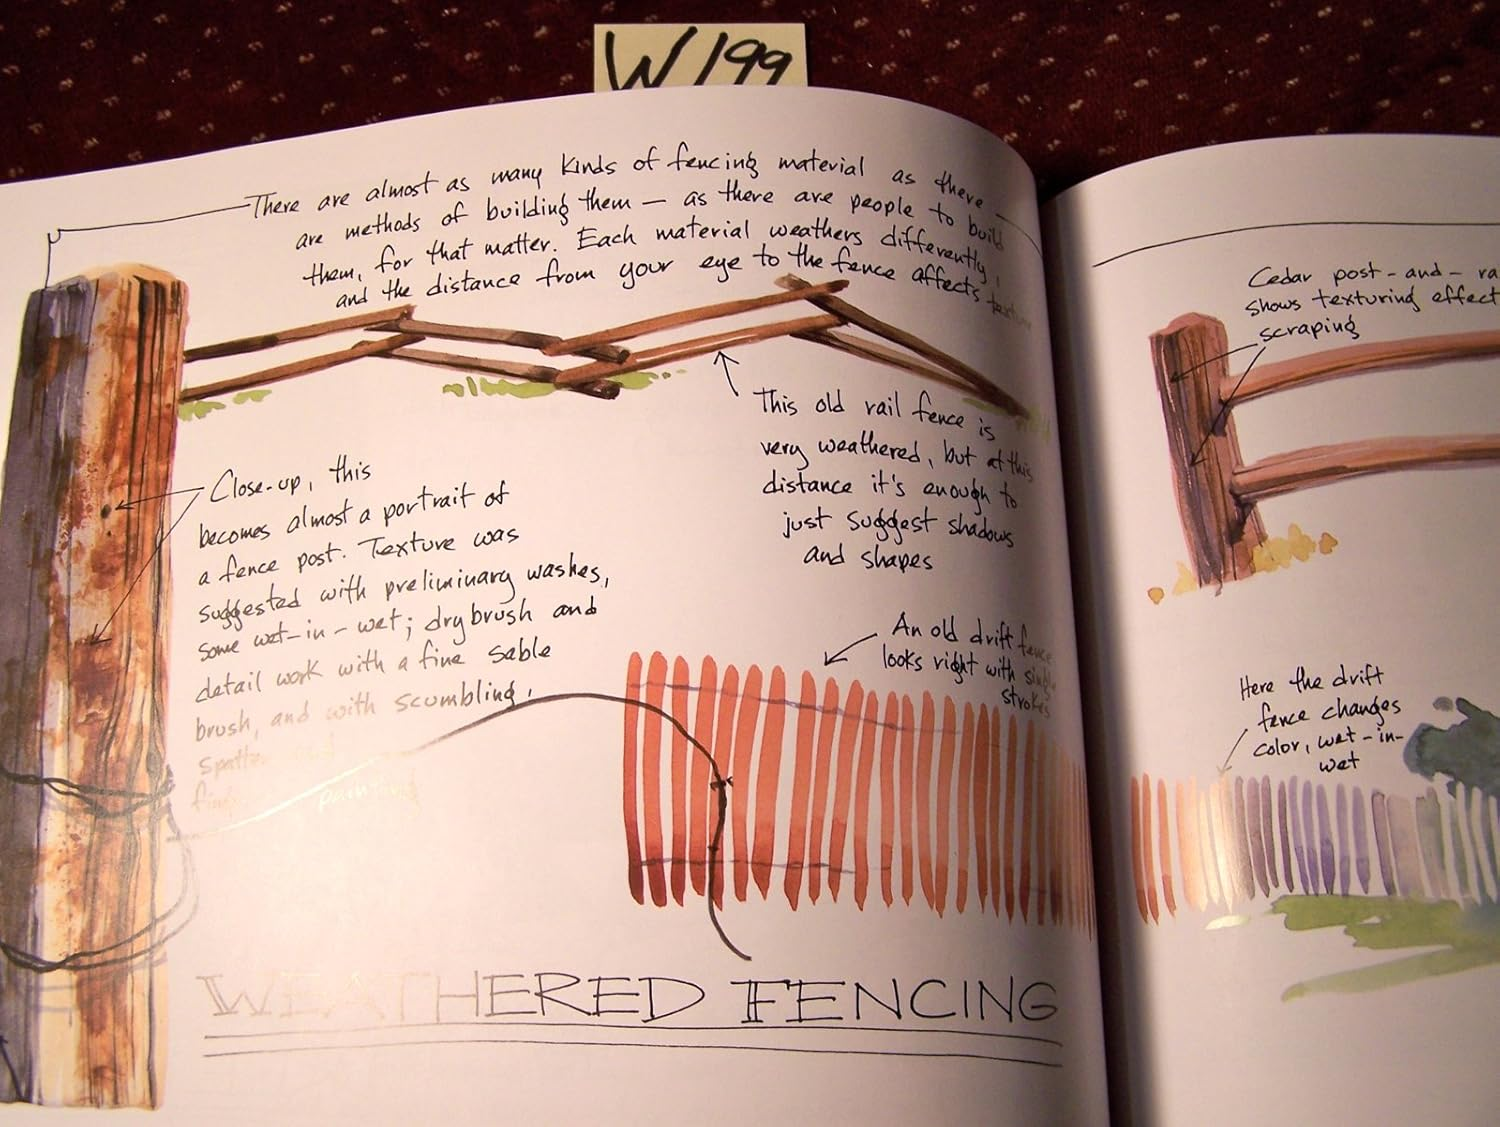 W199
There are almost as many kinds of fencing material as there
are methods of building them — as there are people to build
them, for that matter. Each material weathers differently,
and the distance from your eye to the fence affects texture
This old rail fence is
very weathered, but at this
distance it's enough to
just suggest shadows
and shapes
Close-up, this
becomes almost a portrait of
a fence post. Texture was
suggested with preliminary washes,
some wet-in-wet; drybrush and
detail work with a fine sable
brush, and with scumbling,
painting
An old drift fence
looks right with single
strokes
WEATHERED FENCING
Cedar post-and-ra
shows texturing effect
scraping
Here the drift
fence changes
color, wet-in-
wet